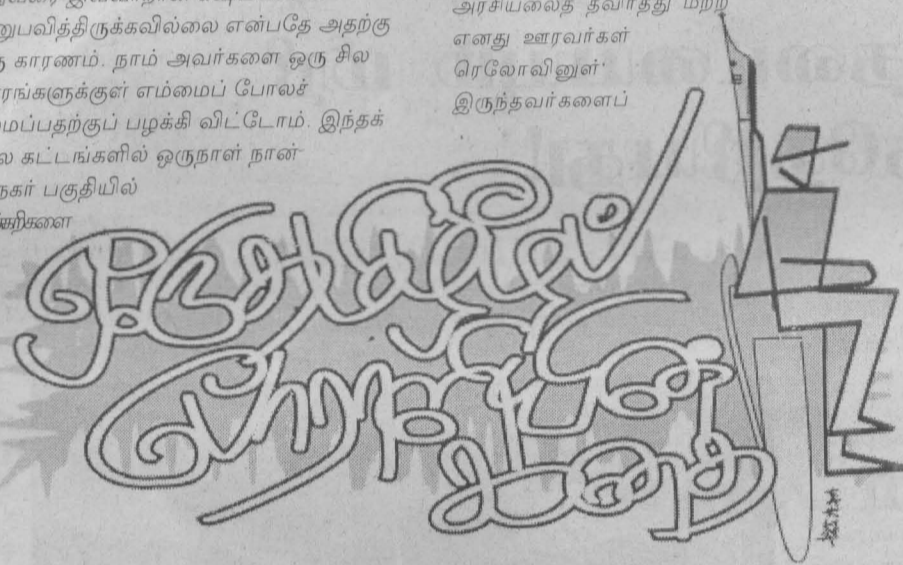 னுபவித்திருக்கவில்லை என்பதே அதற்கு
காரணம். நாம் அவர்களை ஒரு சில
ரங்களுக்குள் எம்மைப் போலச்
மைப்பதற்குப் பழக்கி விட்டோம். இந்தக்
ல கட்டங்களில் ஒருநாள் நான்
நகர் பகுதியில்
கறிகளை
அரசியலைத் தவிர்த்து மற்ற
எனது ஊரவர்கள்
ரெலோவினுள்'
இருந்தவர்களைப்
ஒரு தமிழீழப்
போராளியின்
கதை